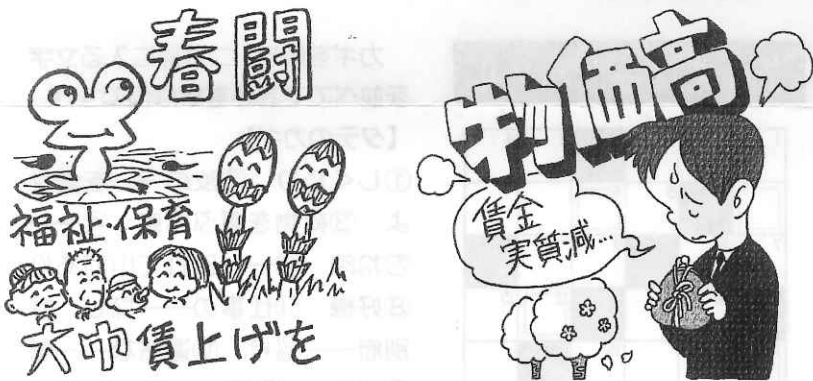 春闘
福祉・保育
大巾賃上げを
物価高
賃金
実質減…